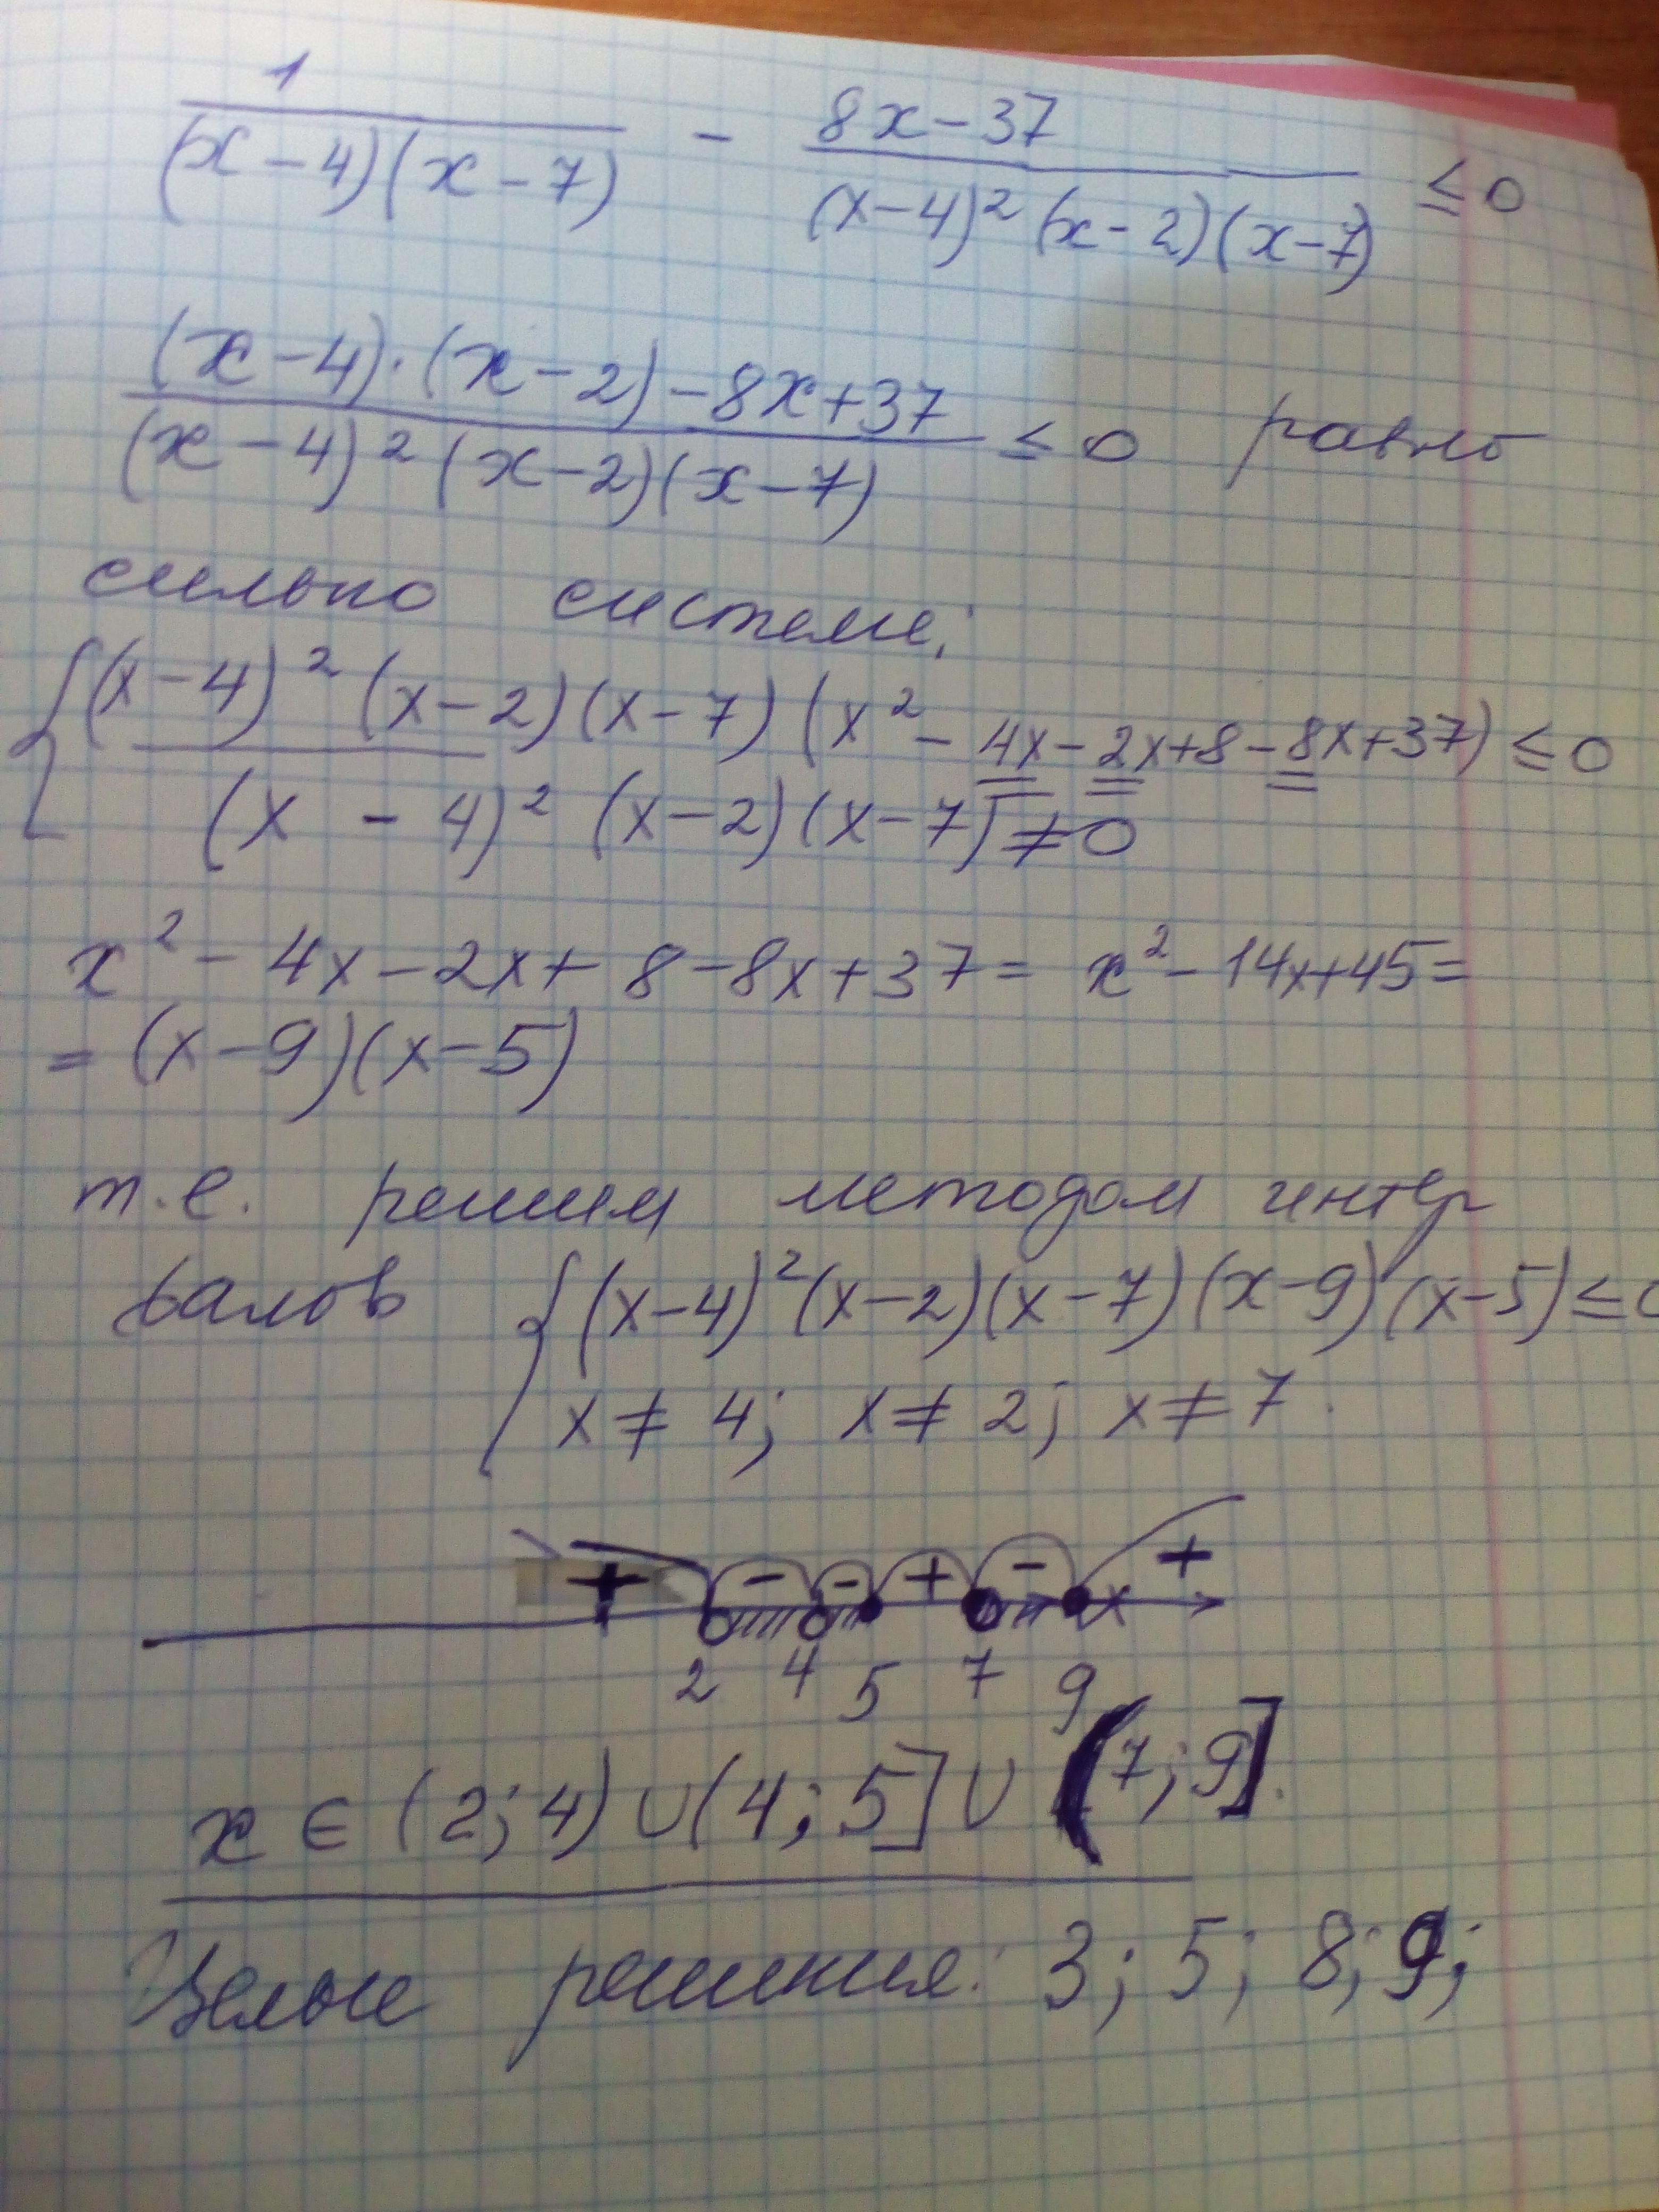 1/((x-4)(x-7)) - (8x-37)/((x-4)²(x-2)(x-7)) ≤ 0
((x-4)·(x-2)-8x+37)/((x-4)²(x-2)(x-7)) ≤ 0 равно
сильно системе:
{(x-4)²(x-2)(x-7)(x²-4x-2x+8-8x+37) ≤ 0
(x-4)²(x-2)(x-7) ≠ 0
x²-4x-2x+8-8x+37 = x²-14x+45 =
= (x-9)(x-5)
т.е. решим методом интер
валов {(x-4)²(x-2)(x-7)(x-9)(x-5) ≤ 0
x ≠ 4; x ≠ 2; x ≠ 7.
+ - - + - + x
2 4 5 7 9
x ∈ (2; 4) ∪ (4; 5] ∪ (7; 9].
Целые решения: 3; 5; 8; 9;